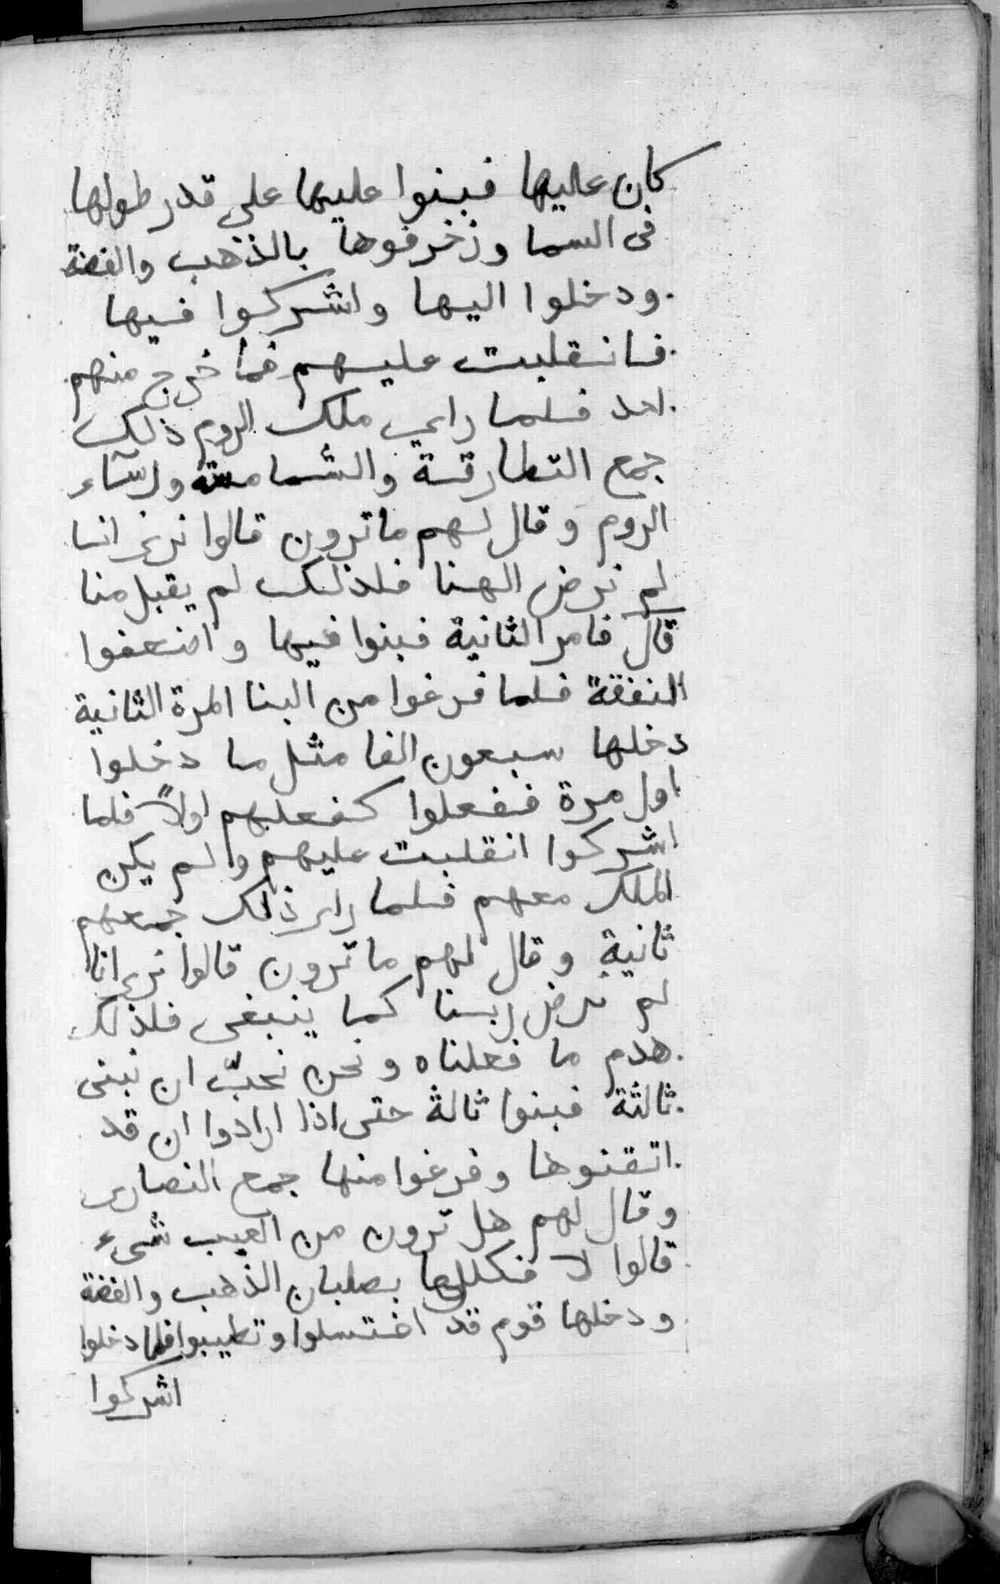 كان عليها فبنوا عليها على قدر طولها
فى السما وزخرفوها بالذهب والفضة
ودخلوا اليها واشركوا فيها
فانقلبت عليهم فما خرج منهم
احد فلما راى ملك الروم ذلك
جمع البطارقة والشمامسة ورٱساء
الروم وقال لهم ما ترون قالوا نرى اننا
لم نرض الهنا فلذلك لم يقبل منا
قال فامر الثانية فبنوا فيها واضعفوا
النفقة فلما فرغوا من البنا المرة الثانية
دخلها سبعون الفا مثل ما دخلوا
اول مرة ففعلوا كفعلهم اولاً فلما
اشركوا انقلبت عليهم ولم يكن
الملك معهم فلما راى ذلك جمعهم
ثانية وقال لهم ما ترون قالوا نرى انا
لم نرض ربنا كما ينبغى فلذلك
هدم ما فعلناه ونحن نحبّ ان نبنى
ثالثة فبنوا ثالثة حتى اذا ارادوا ان قد
اتقنوها وفرغوا منها جمع النصارى
وقال لهم هل ترون من العيب شىء
قالوا لا فكللها بصلبان الذهب والفضة
ودخلها قوم قد اغتسلوا وتطيبوا فلما دخلوا
اشركوا